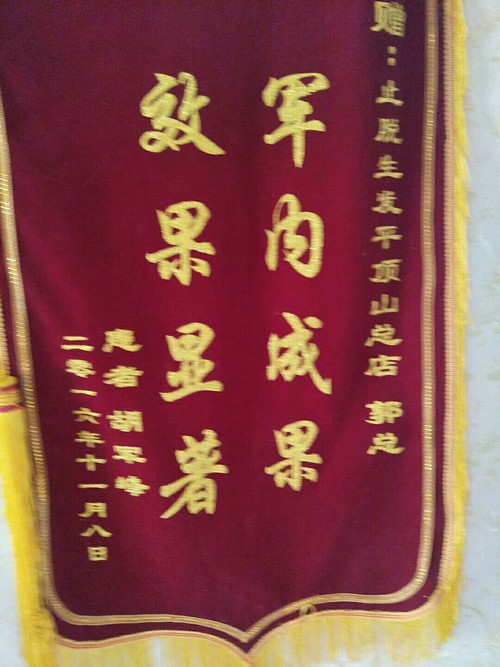 赠：止脱生发平顶山总店 郭总
军内成果
效果显著
患者 胡军峰
二零一六年十一月八日